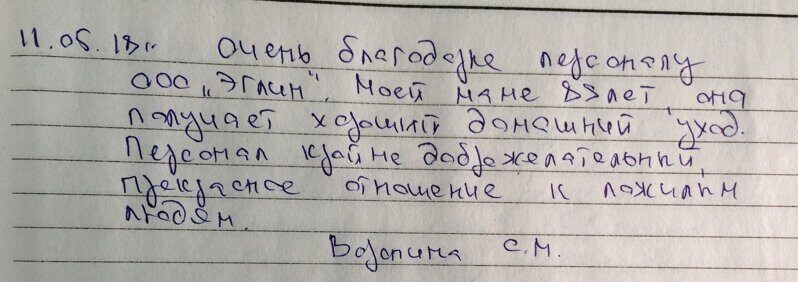 11.05.18 г. Очень благодарна персоналу
ООО „Эглин". Моей маме 83 лет, она
получает хороший домашний уход.
Персонал крайне доброжелательный,
прекрасное отношение к пожилым
людям.
С.М.